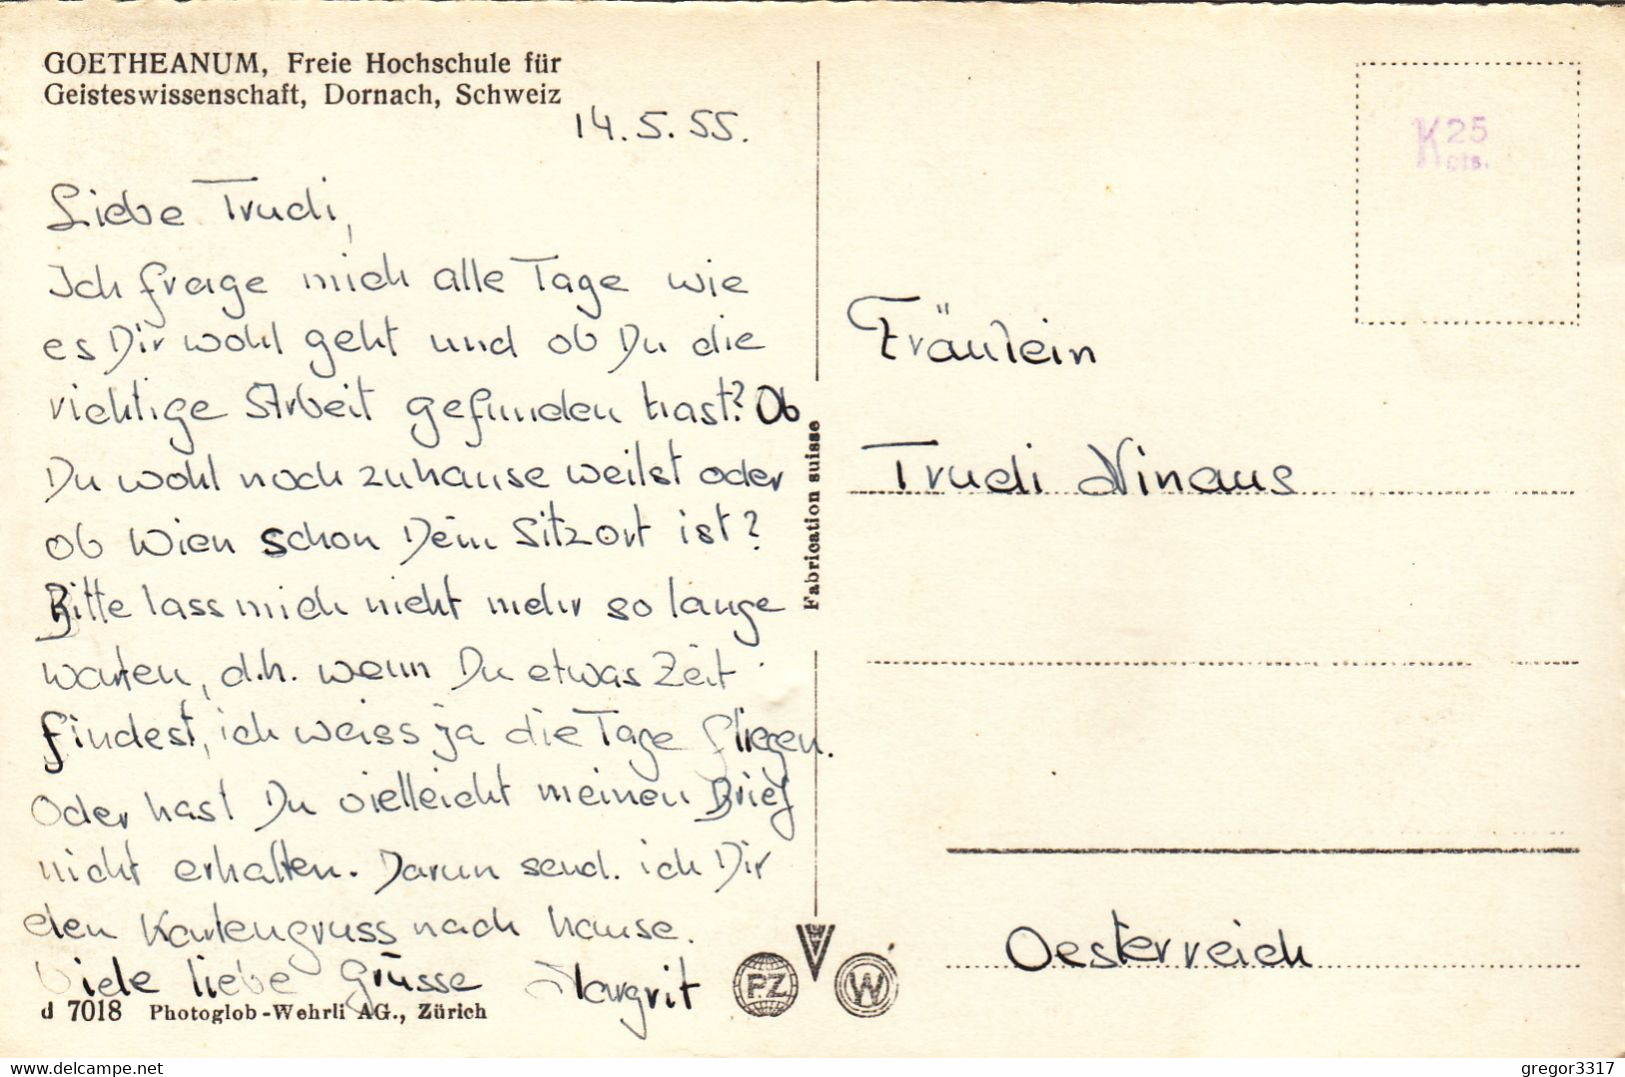 GOETHEANUM, Freie Hochschule für
Geisteswissenschaft, Dornach, Schweiz
14.5.55.
Liebe Trudi,
Ich frage mich alle Tage wie
es Dir wohl geht und ob Du die
richtige Arbeit gefunden hast? Ob
Du wohl noch zuhause weilst oder
ob Wien schon Dein Sitzort ist?
Bitte lass mich nicht mehr so lange
warten, d.h. wenn Du etwas Zeit
findest, ich weiss ja die Tage fliegen.
Oder hast Du vielleicht meinen Brief
nicht erhalten. Darum send. ich Dir
den Kartengruss nach hause.
Viele liebe Grüsse Margrit
d 7018 Photoglob-Wehrli AG., Zürich
Fabrication suisse
PZ
W
K 25
cts.
Fräulein
Trudi Ninaus
Oesterreich
www.delcampe.net
gregor3317